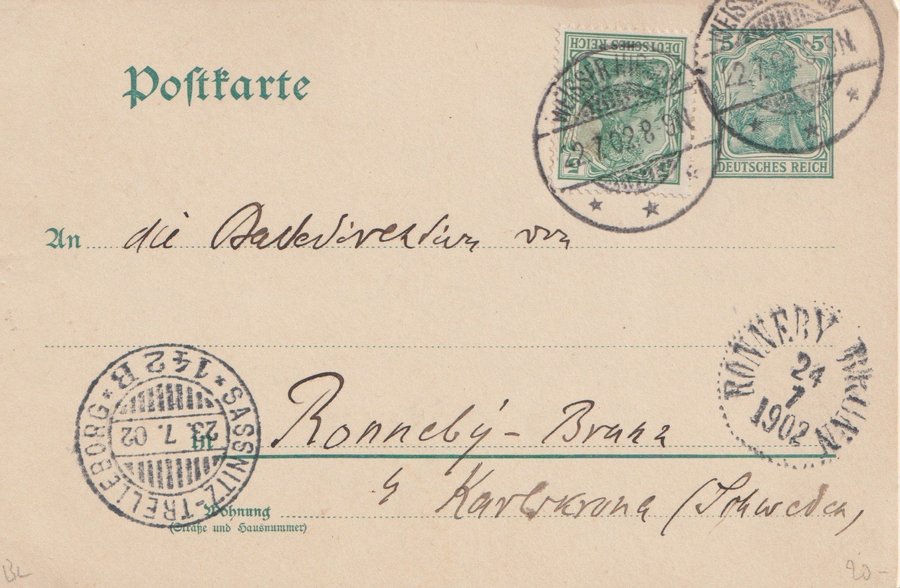 Postkarte
DEUTSCHES REICH
5
2.7.02.8-9N.
5 5
DEUTSCHES REICH
An die Badedirektion von
RONNEBY BRUNN
24
7
1902
SASSNITZ-TRELLEBORG
*142 B*
23. 7. 02
in Ronneby-Brunn
Wohnung
(Straße und Hausnummer)
Karlskrona (Schweden)
BL
20-